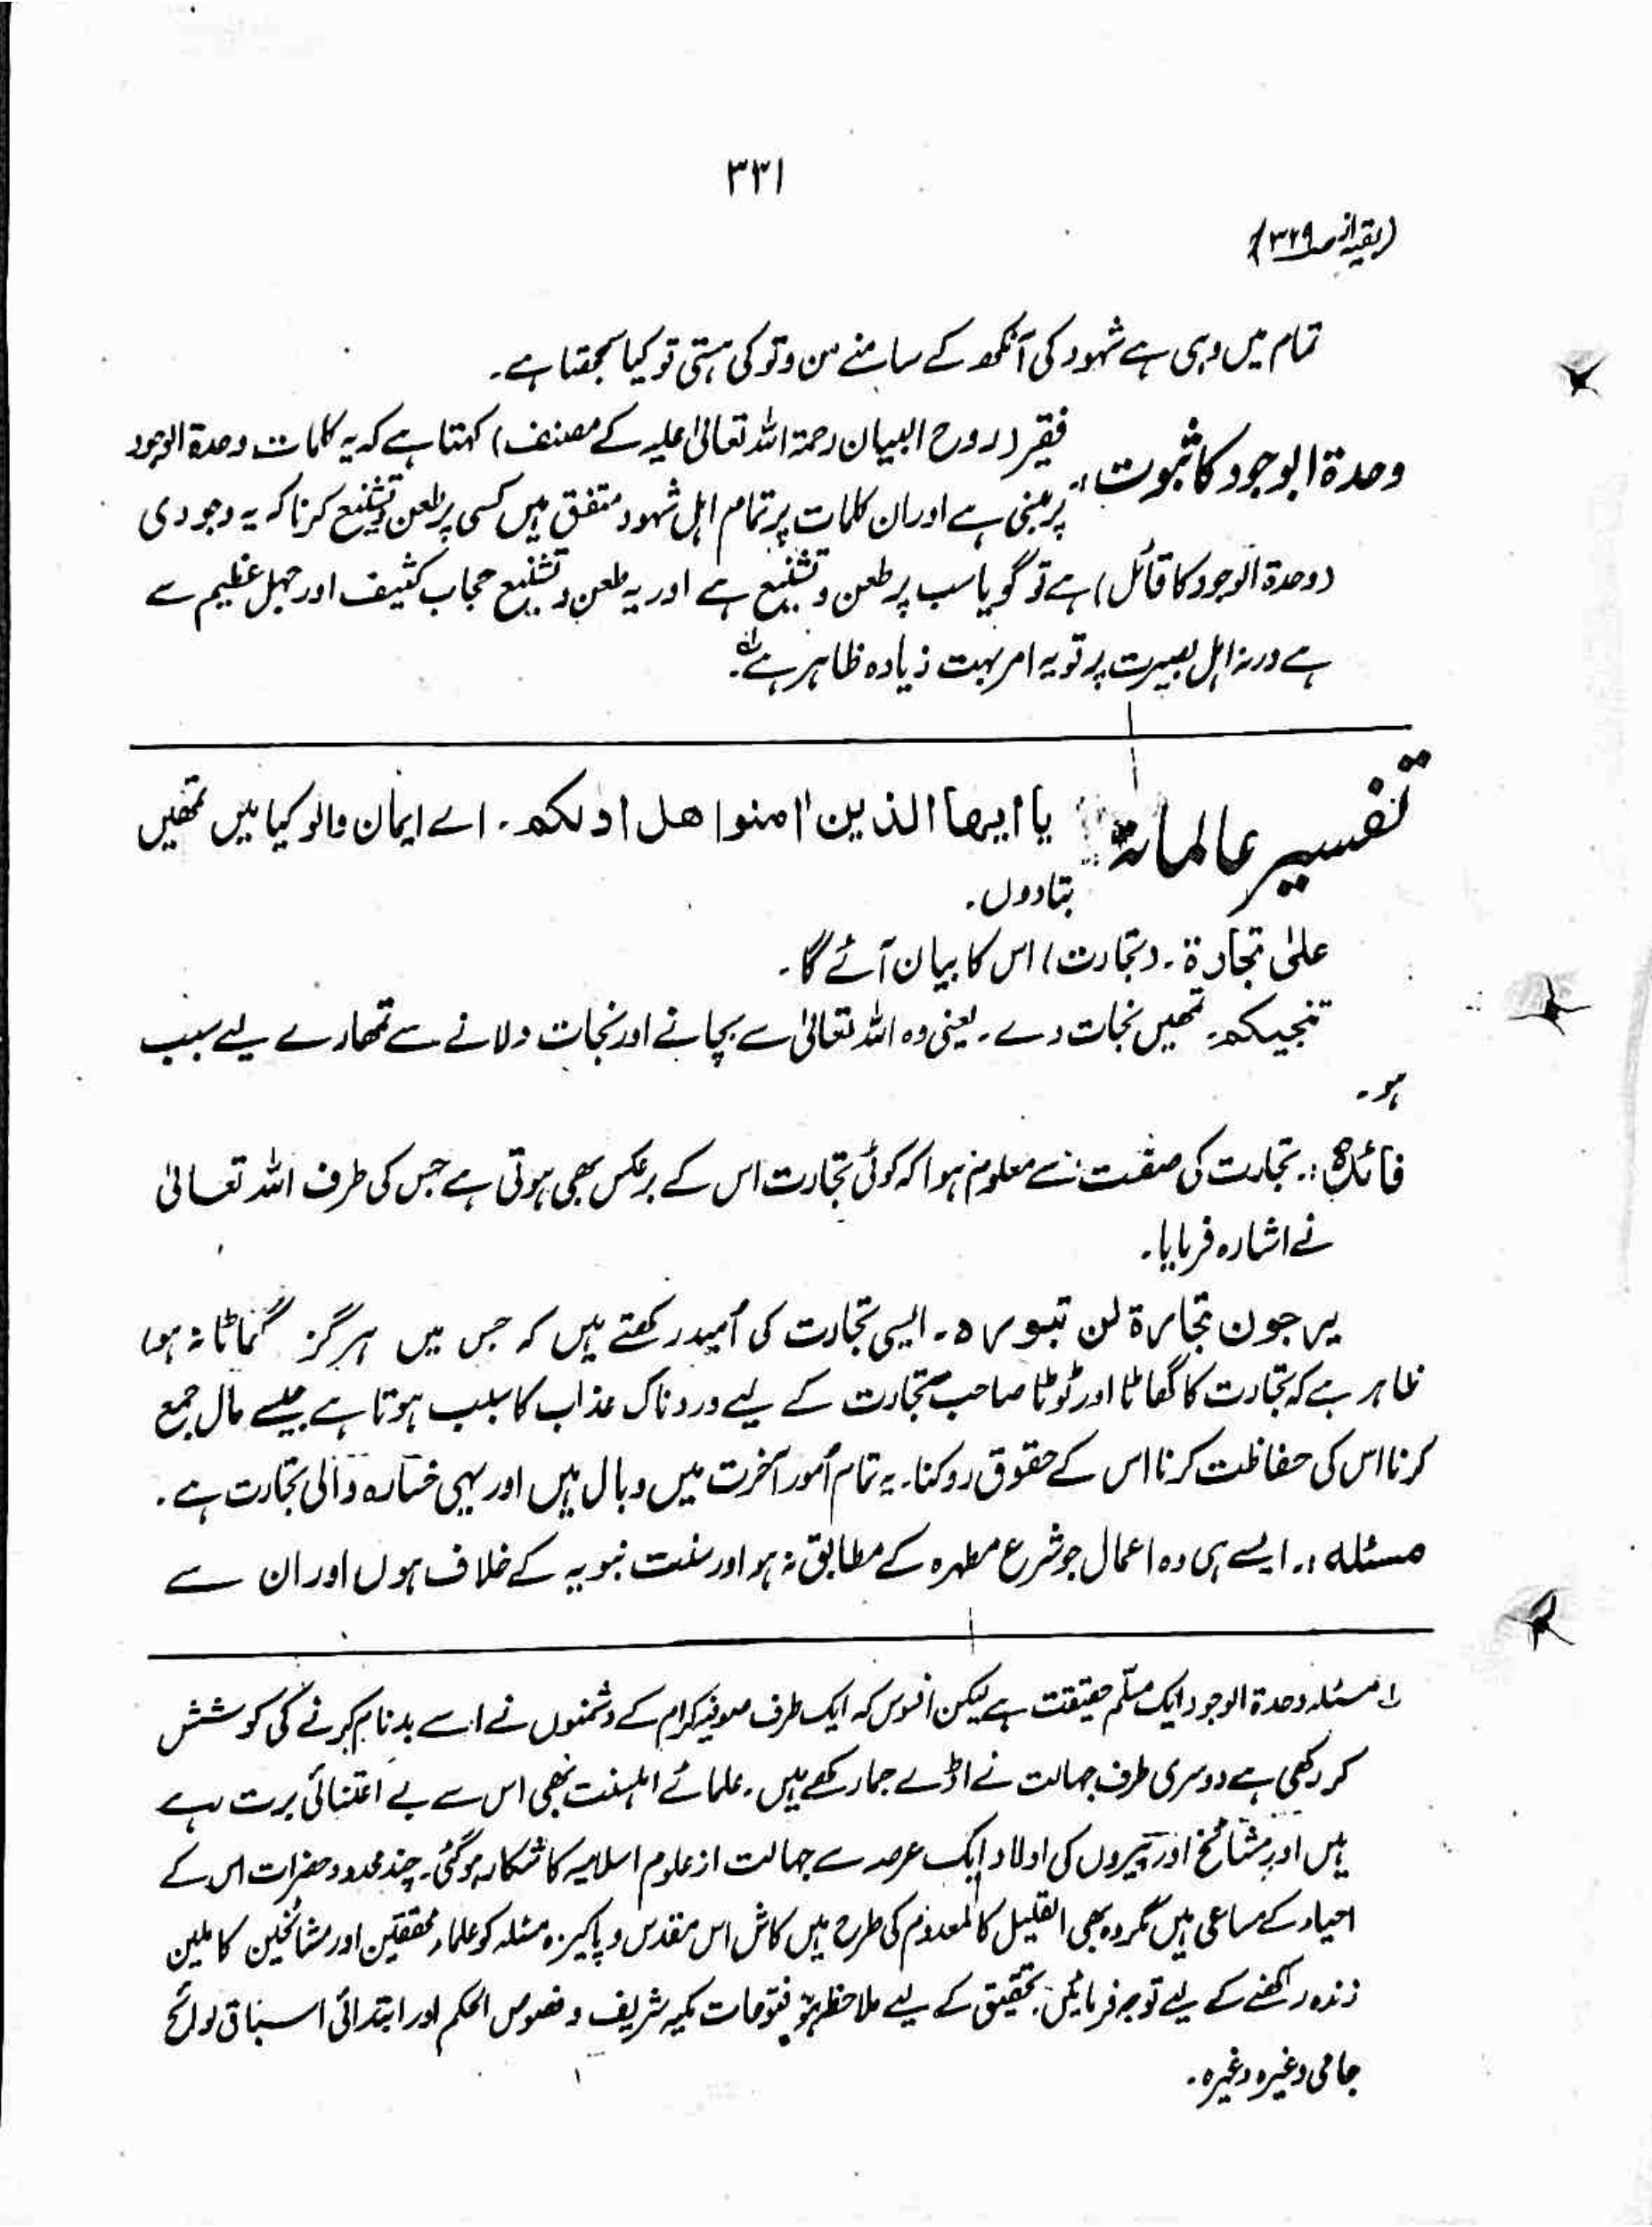 ۳۳۱
(بقیہ از صـ ۳۲۹)
تمام میں وہی ہے شہود کی آنکھ کے سامنے من و تو کی ہستی تو کیا سمجھتا ہے۔
وحدۃ الوجود کا ثبوت :۔ فقیر (روح البیان رحمۃ اللہ تعالیٰ علیہ کے مصنف) کہتا ہے کہ یہ کلمات وحدۃ الوجود
پر مبنی ہے اور ان کلمات پر تمام اہل شہود متفق ہیں کسی پر طعن و تشنیع کرنا کہ یہ وجودی
(وحدۃ الوجود کا قائل) ہے تو گویا سب پر طعن و تشنیع ہے اور یہ طعن و تشنیع حجاب کثیف اور جہل عظیم سے
ہے ورنہ اہل بصیرت پر تو یہ امر بہت زیادہ ظاہر ہے۔
تفسیر عالمانہ یا ایھا الذین اٰمنوا ھل ادلکم۔ اے ایمان والو کیا میں تمھیں
بتا دوں۔
علیٰ تجارۃ۔ (تجارت) اس کا بیان آئے گا۔
تنجیکم۔ تمھیں نجات دے۔ یعنی وہ اللہ تعالیٰ سے بچانے اور نجات دلانے سے تمھارے لیے سبب
ہو۔
فائدہ :۔ تجارت کی صفت سے معلوم ہوا کہ کوئی تجارت اس کے برعکس بھی ہوتی ہے جس کی طرف اللہ تعالیٰ
نے اشارہ فرمایا۔
یرجون تجارۃ لن تبورہ۔ ایسی تجارت کی اُمید رکھتے ہیں کہ جس میں ہرگز گھاٹا نہ ہو۔
ظاہر ہے کہ تجارت کا گھاٹا اور ٹوٹا صاحب تجارت کے لیے دردناک عذاب کا سبب ہوتا ہے جیسے مال جمع
کرنا اس کی حفاظت کرنا اس کے حقوق روکنا۔ یہ تمام اُمور آخرت میں وبال ہیں اور یہی خسارہ والی تجارت ہے۔
مسئلہ :۔ ایسے ہی وہ اعمال جو شرع مطہرہ کے مطابق نہ ہو اور سنت نبویہ کے خلاف ہوں اور ان سے
۱؎ مسئلہ وحدۃ الوجود ایک مسلّم حقیقت ہے لیکن افسوس کہ ایک طرف صوفیہ کرام کے دشمنوں نے اسے بدنام کرنے کی کوشش
کر رکھی ہے دوسری طرف جہالت نے اڈے جما رکھے ہیں۔ علمائے اہلسنت بھی اس سے بے اعتنائی برت رہے
ہیں اور مشائخ اور پیروں کی اولاد ایک عرصہ سے جہالت از علوم اسلامیہ کا شکار ہو گئی۔ چند محدود حضرات اس کے
احیاء کے مساعی ہیں مگر وہ بھی القلیل کالمعدوم کی طرح ہیں کاش اس مقدس و پاکیزہ مسئلہ کو علماء محققین اور مشائخین کاملین
زندہ رکھنے کے لیے توجہ فرمائیں۔ تحقیق کے لیے ملاحظہ ہو فتوحات مکیہ شریف و فصوص الحکم اور ابتدائی اسباق لوائح
جامی وغیرہ وغیرہ۔